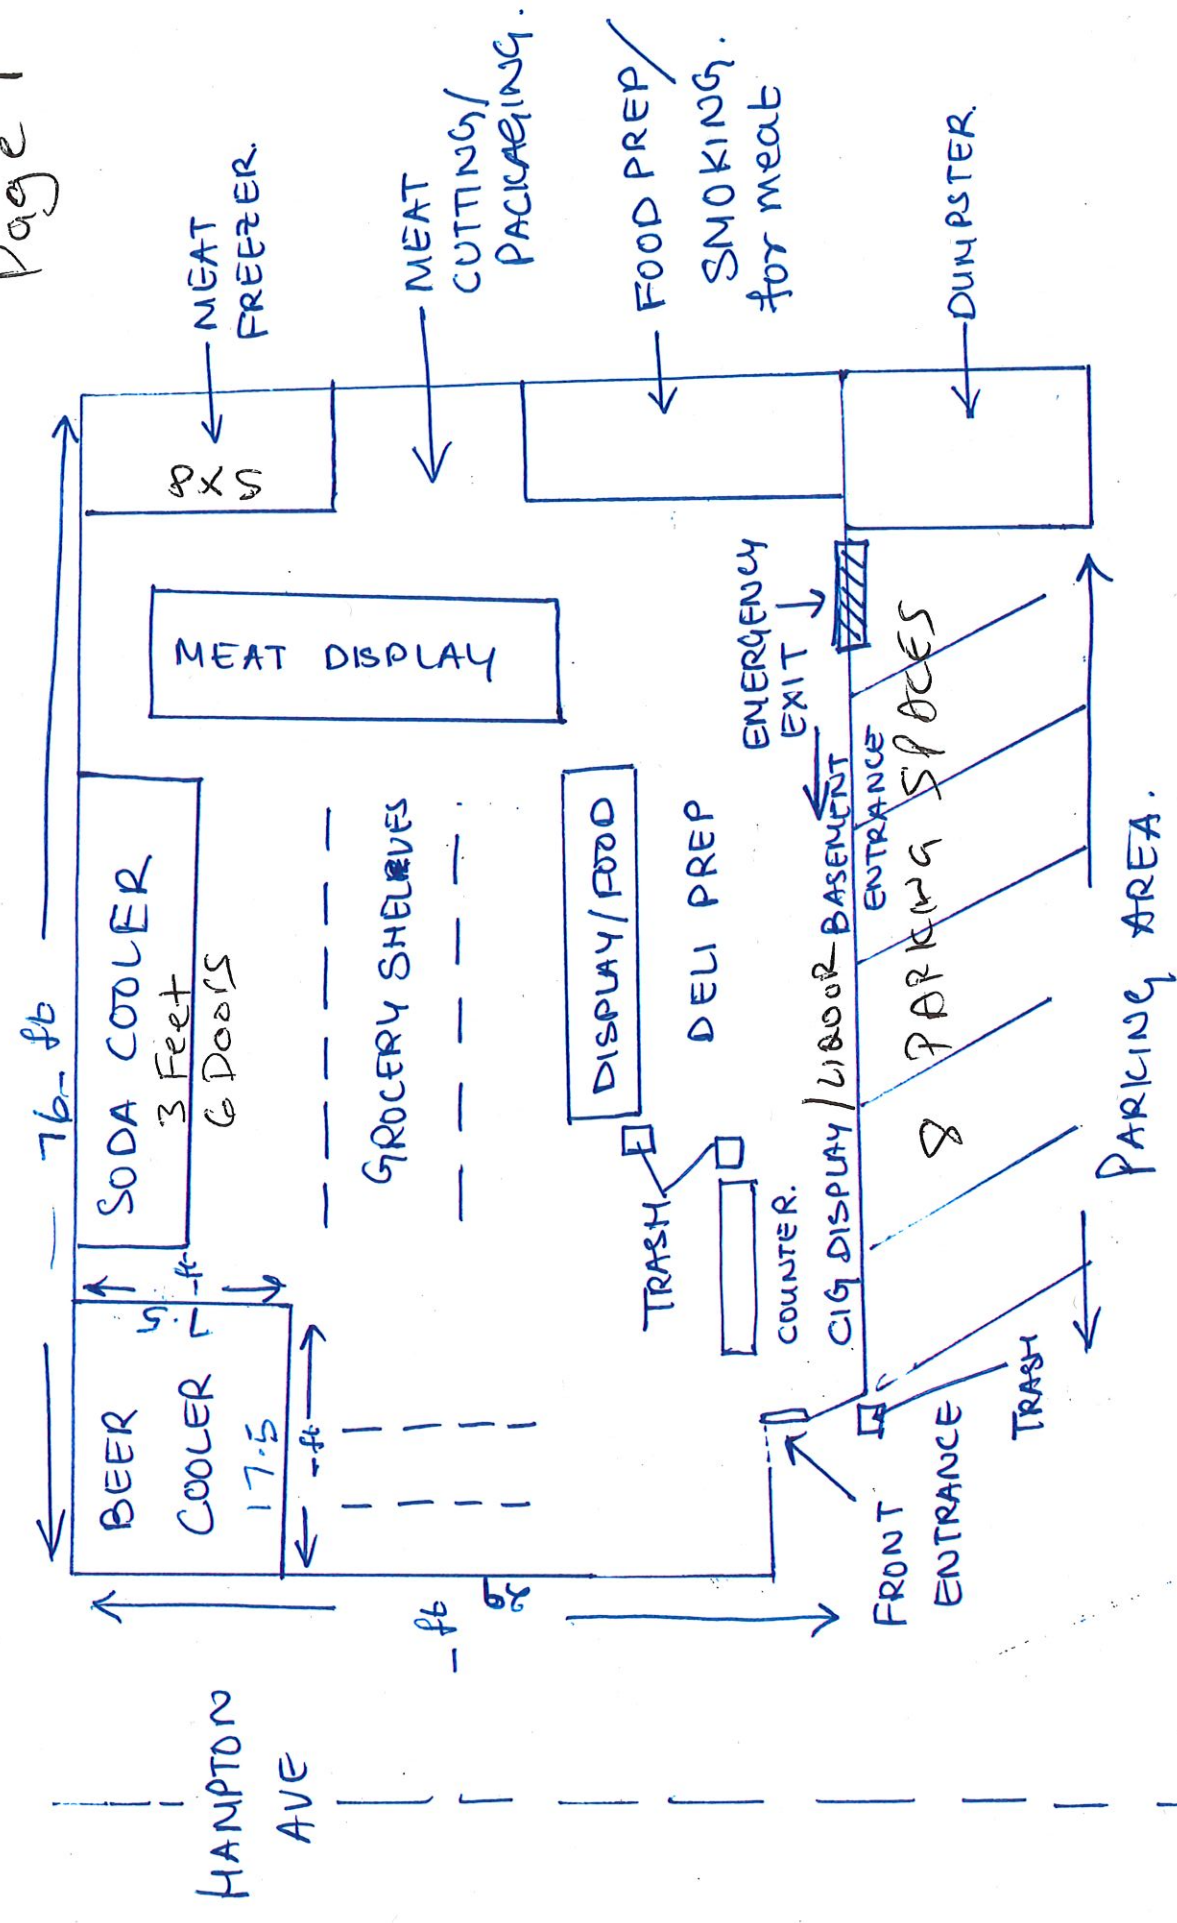 Page 1
MEAT
FREEZER.
8X5
MEAT
CUTTING/
PACKAGING.
FOOD PREP/
SMOKING.
for meat
DUMPSTER.
MEAT DISPLAY
EMERGENCY
EXIT
76-ft
SODA COOLER
3 Feet
6 Doors
GROCERY SHELVES
DISPLAY/FOOD
DELI PREP
BASEMENT
ENTRANCE
8 PARKING SPACES
PARKING AREA.
TRASH
COUNTER.
CIG DISPLAY/LIQOOR
BEER
COOLER
7.5-ft
17.5
-ft
-ft
FRONT
ENTRANCE
TRASH
HAMPTON
AVE